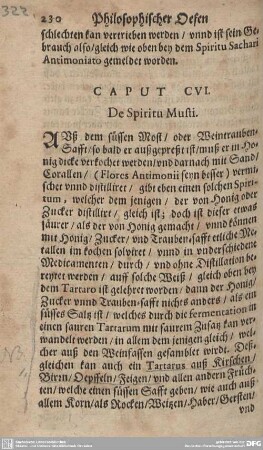 322
230 Philosophischer Oefen
schlechten kan vertrieben werden / vnnd ist sein Ge-
brauch also / gleich wie oben bey dem Spiritu Sachari
Antimoniato gemeldet worden.
CAPUT CVI.
De Spiritu Musti.
AVß dem süssen Most / oder Weintrauben-
Safft / so bald er außgepreßt ist / muß er in Ho-
nig dicke verkochet werden / und darnach mit Sand /
Corallen / (Flores Antimonii seyn besser) vermi-
schet vnnd distilliret / gibt eben einen solchen Spiri-
tum, welcher dem jenigen / der von Honig oder
Zucker distilliret / gleich ist; doch ist dieser etwas
säurer / als der von Honig gemacht / vnnd können
mit Honig / Zucker / vnd Trauben-safft etliche Me-
tallen im kochen solviret / vnnd in vnderschiedene
Medicamenten / durch / vnd ohne Distillation be-
reytet werden / auff solche Weiß / gleich oben bey
dem Tartaro ist gelehret worden / dann der Honig /
Zucker vnnd Trauben-safft nichts anders / als ein
süsses Saltz ist / welches durch die fermentation in
einen sauren Tartarum mit saurem Zusatz kan ver-
wandelt werden / in allem dem jenigen gleich / wel-
cher auß den Weinfassen gesamblet wirdt. Deß-
gleichen kan auch ein Tartarus auß Kirschen /
Birn / Oepffeln / Feigen / vnd allen andern Früch-
ten / welche einen süssen Safft geben, wie auch auß
allem Korn / als Rocken / Weitzen / Haber / Gersten /
vnd
NB.